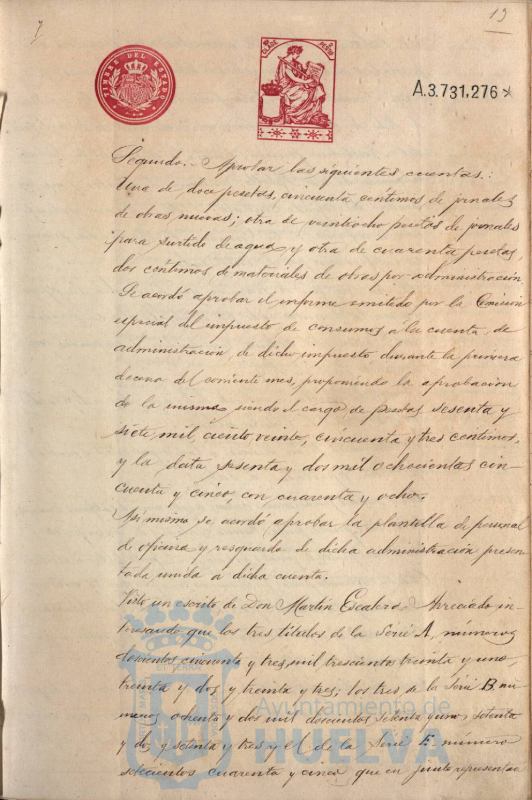 7
19
TIMBRE DEL ESTADO
A.3.731.276
Segundo.- Aprobar las siguientes cuentas.:
Una de doce pesetas, cincuenta céntimos de jornales
de obras nuevas; otra de veintiocho pesetas de jornales
para surtido de agua, y otra de cuarenta pesetas,
dos céntimos de materiales de obras por administración
Se acordó aprobar el informe emitido por la Comisión
especial del impuesto de consumos a la cuenta, de
administración, de dicho impuesto durante la primera
decena del corriente mes, proponiendo la aprobación
de la misma, siendo el cargo, de pesetas sesenta y
siete, mil, ciento veinte, cincuenta y tres centimos,
y la data sesenta y dos mil ochocientas cin-
cuenta y cinco, con cuarenta y ocho.
Asi mismo, se acordó aprobar la plantilla de personal
de oficina y resguardo de dicha administración presen-
tada unida a dicha cuenta.
Visto un escrito de Don Martín Arreciado in-
teresando que los tres títulos de la Serie A, números
doscientos cincuenta y tres, mil trescientos treinta y uno,
treinta y dos y treinta y tres; los tres de la Serie B nu-
meros ochenta y dos mil doscientos setenta y uno, setenta
y dos y setenta y tres y el de la Serie E número
setecientos cuarenta y cinco que en junto representan
Ayuntamiento de
HUELVA